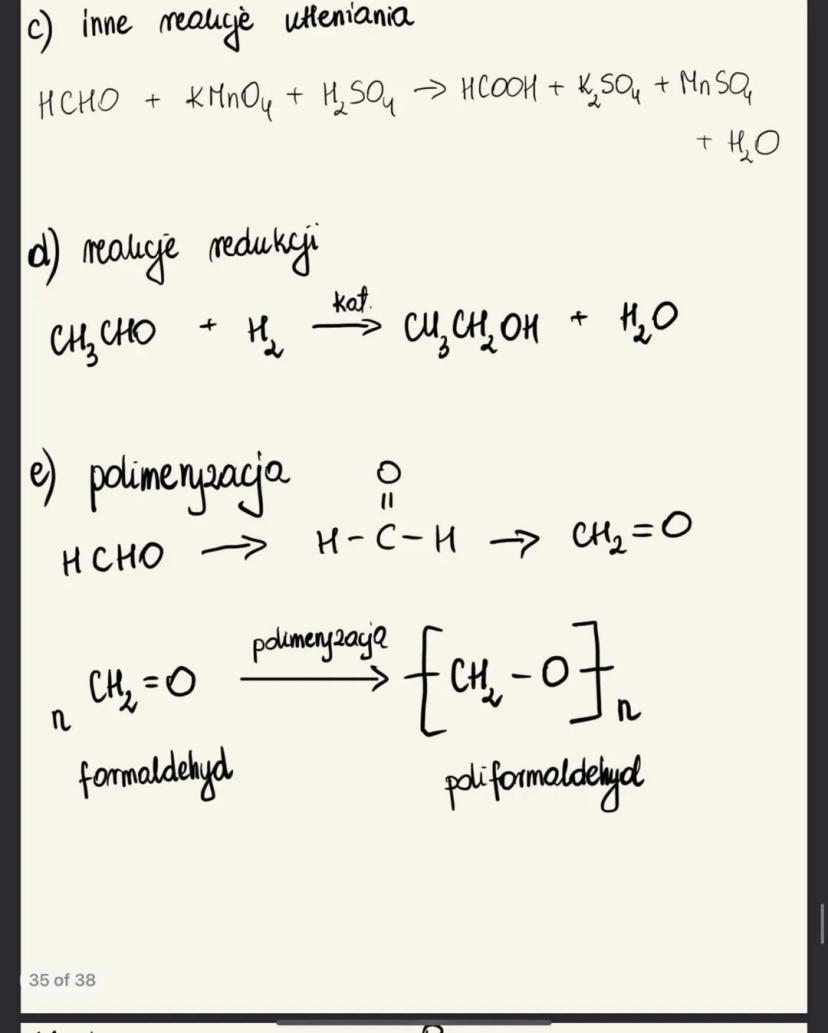 c) inne reakcje utleniania
HCHO + KMnO₄ + H₂SO₄ → HCOOH + K₂SO₄ + MnSO₄
+ H₂O
d) reakcje redukcji
kat.
CH₃CHO + H₂ → CH₃CH₂OH + H₂O
e) polimeryzacja
O
||
HCHO → H-C-H → CH₂=O
polimeryzacja
n CH₂=O → [CH₂-O]n
formaldehyd poliformaldehyd
35 of 38